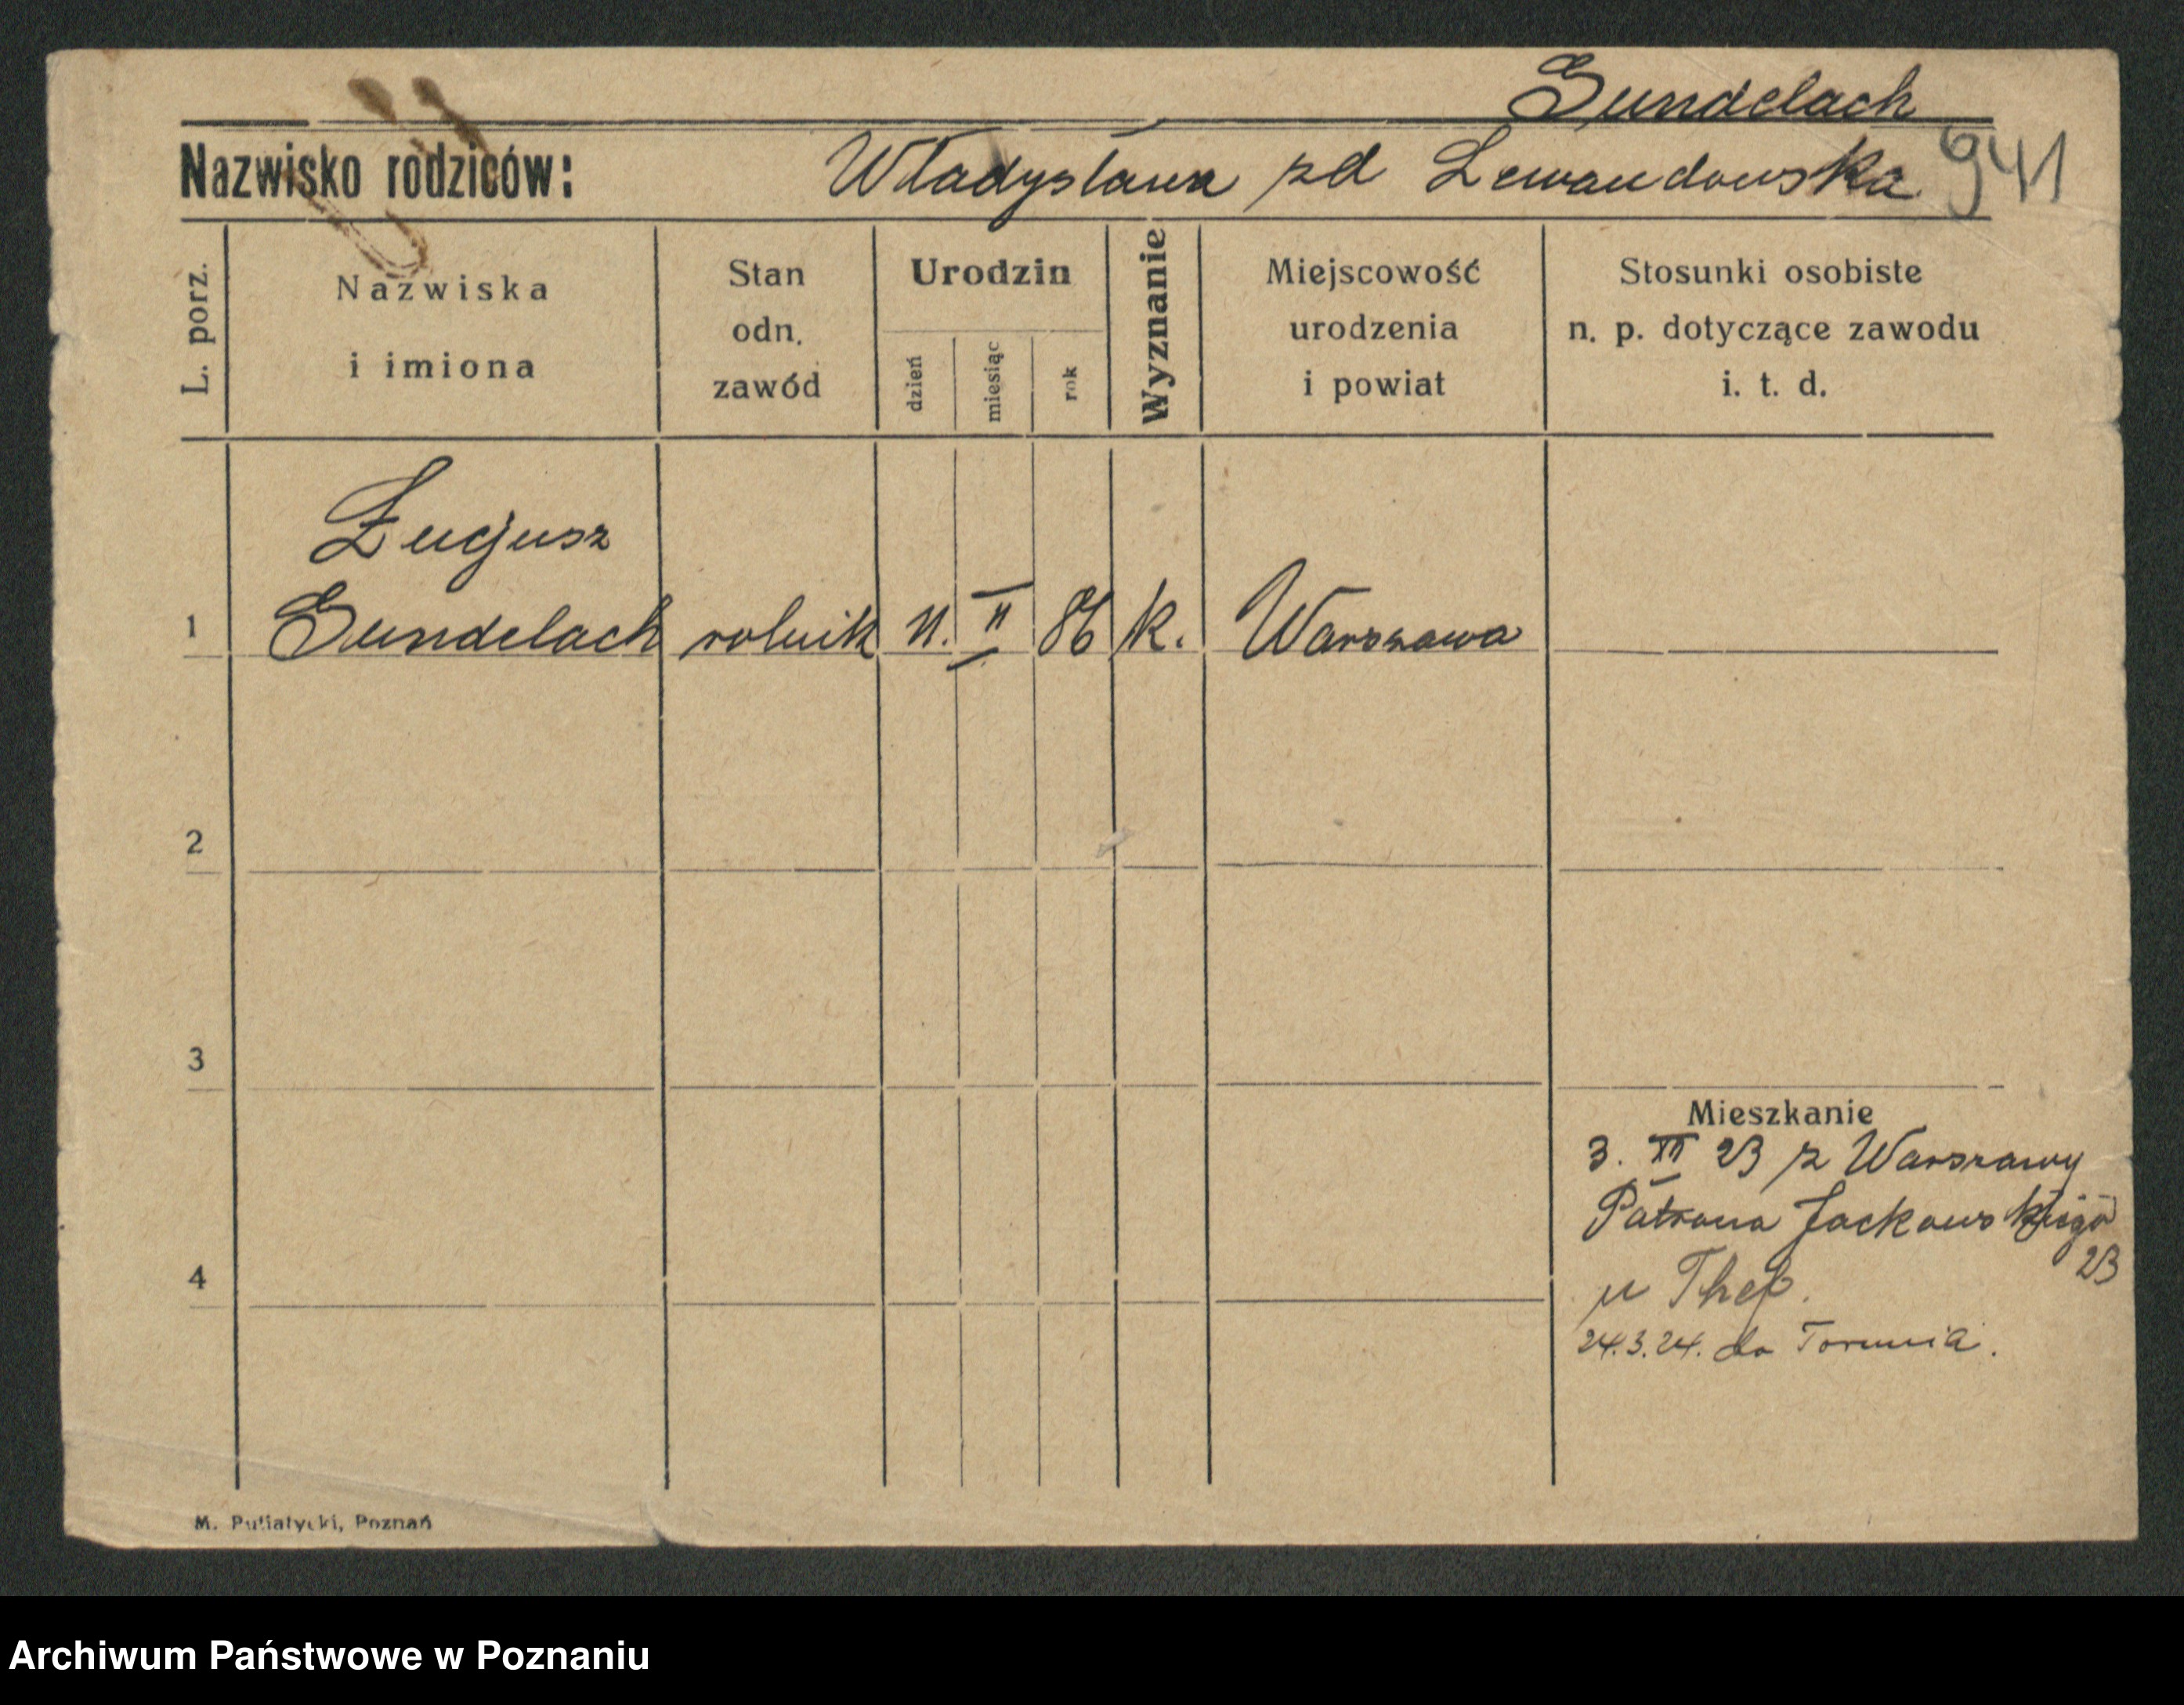 Gundelach
Nazwisko rodziców: Władysława zd Lewandowska 941
L. porz.
Nazwiska
i imiona
Stan
odn.
zawód
Urodzin
dzień
miesiąc
rok
Wyznanie
Miejscowość
urodzenia
i powiat
Stosunki osobiste
n. p. dotyczące zawodu
i. t. d.
Lucjusz
1 Gundelach rolnik 11. II 86 k. Warszawa
2
3
4
Mieszkanie
3. XII 23 z Warszawy
Patrona Jackowskiego
23
u
24.3.24. do Torunia.
M. Putiatycki, Poznań
Archiwum Państwowe w Poznaniu